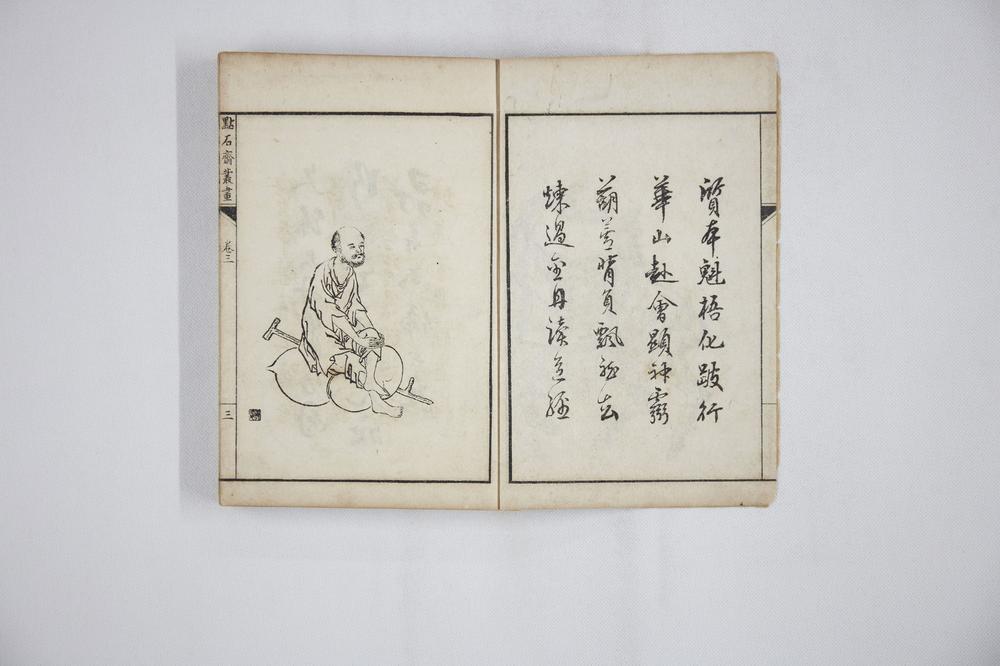 質本魁梧化跛行
華山赴會顯神靈
葫蘆背負飄然去
煉過金丹讀道經
點石齋叢畫
卷三
三